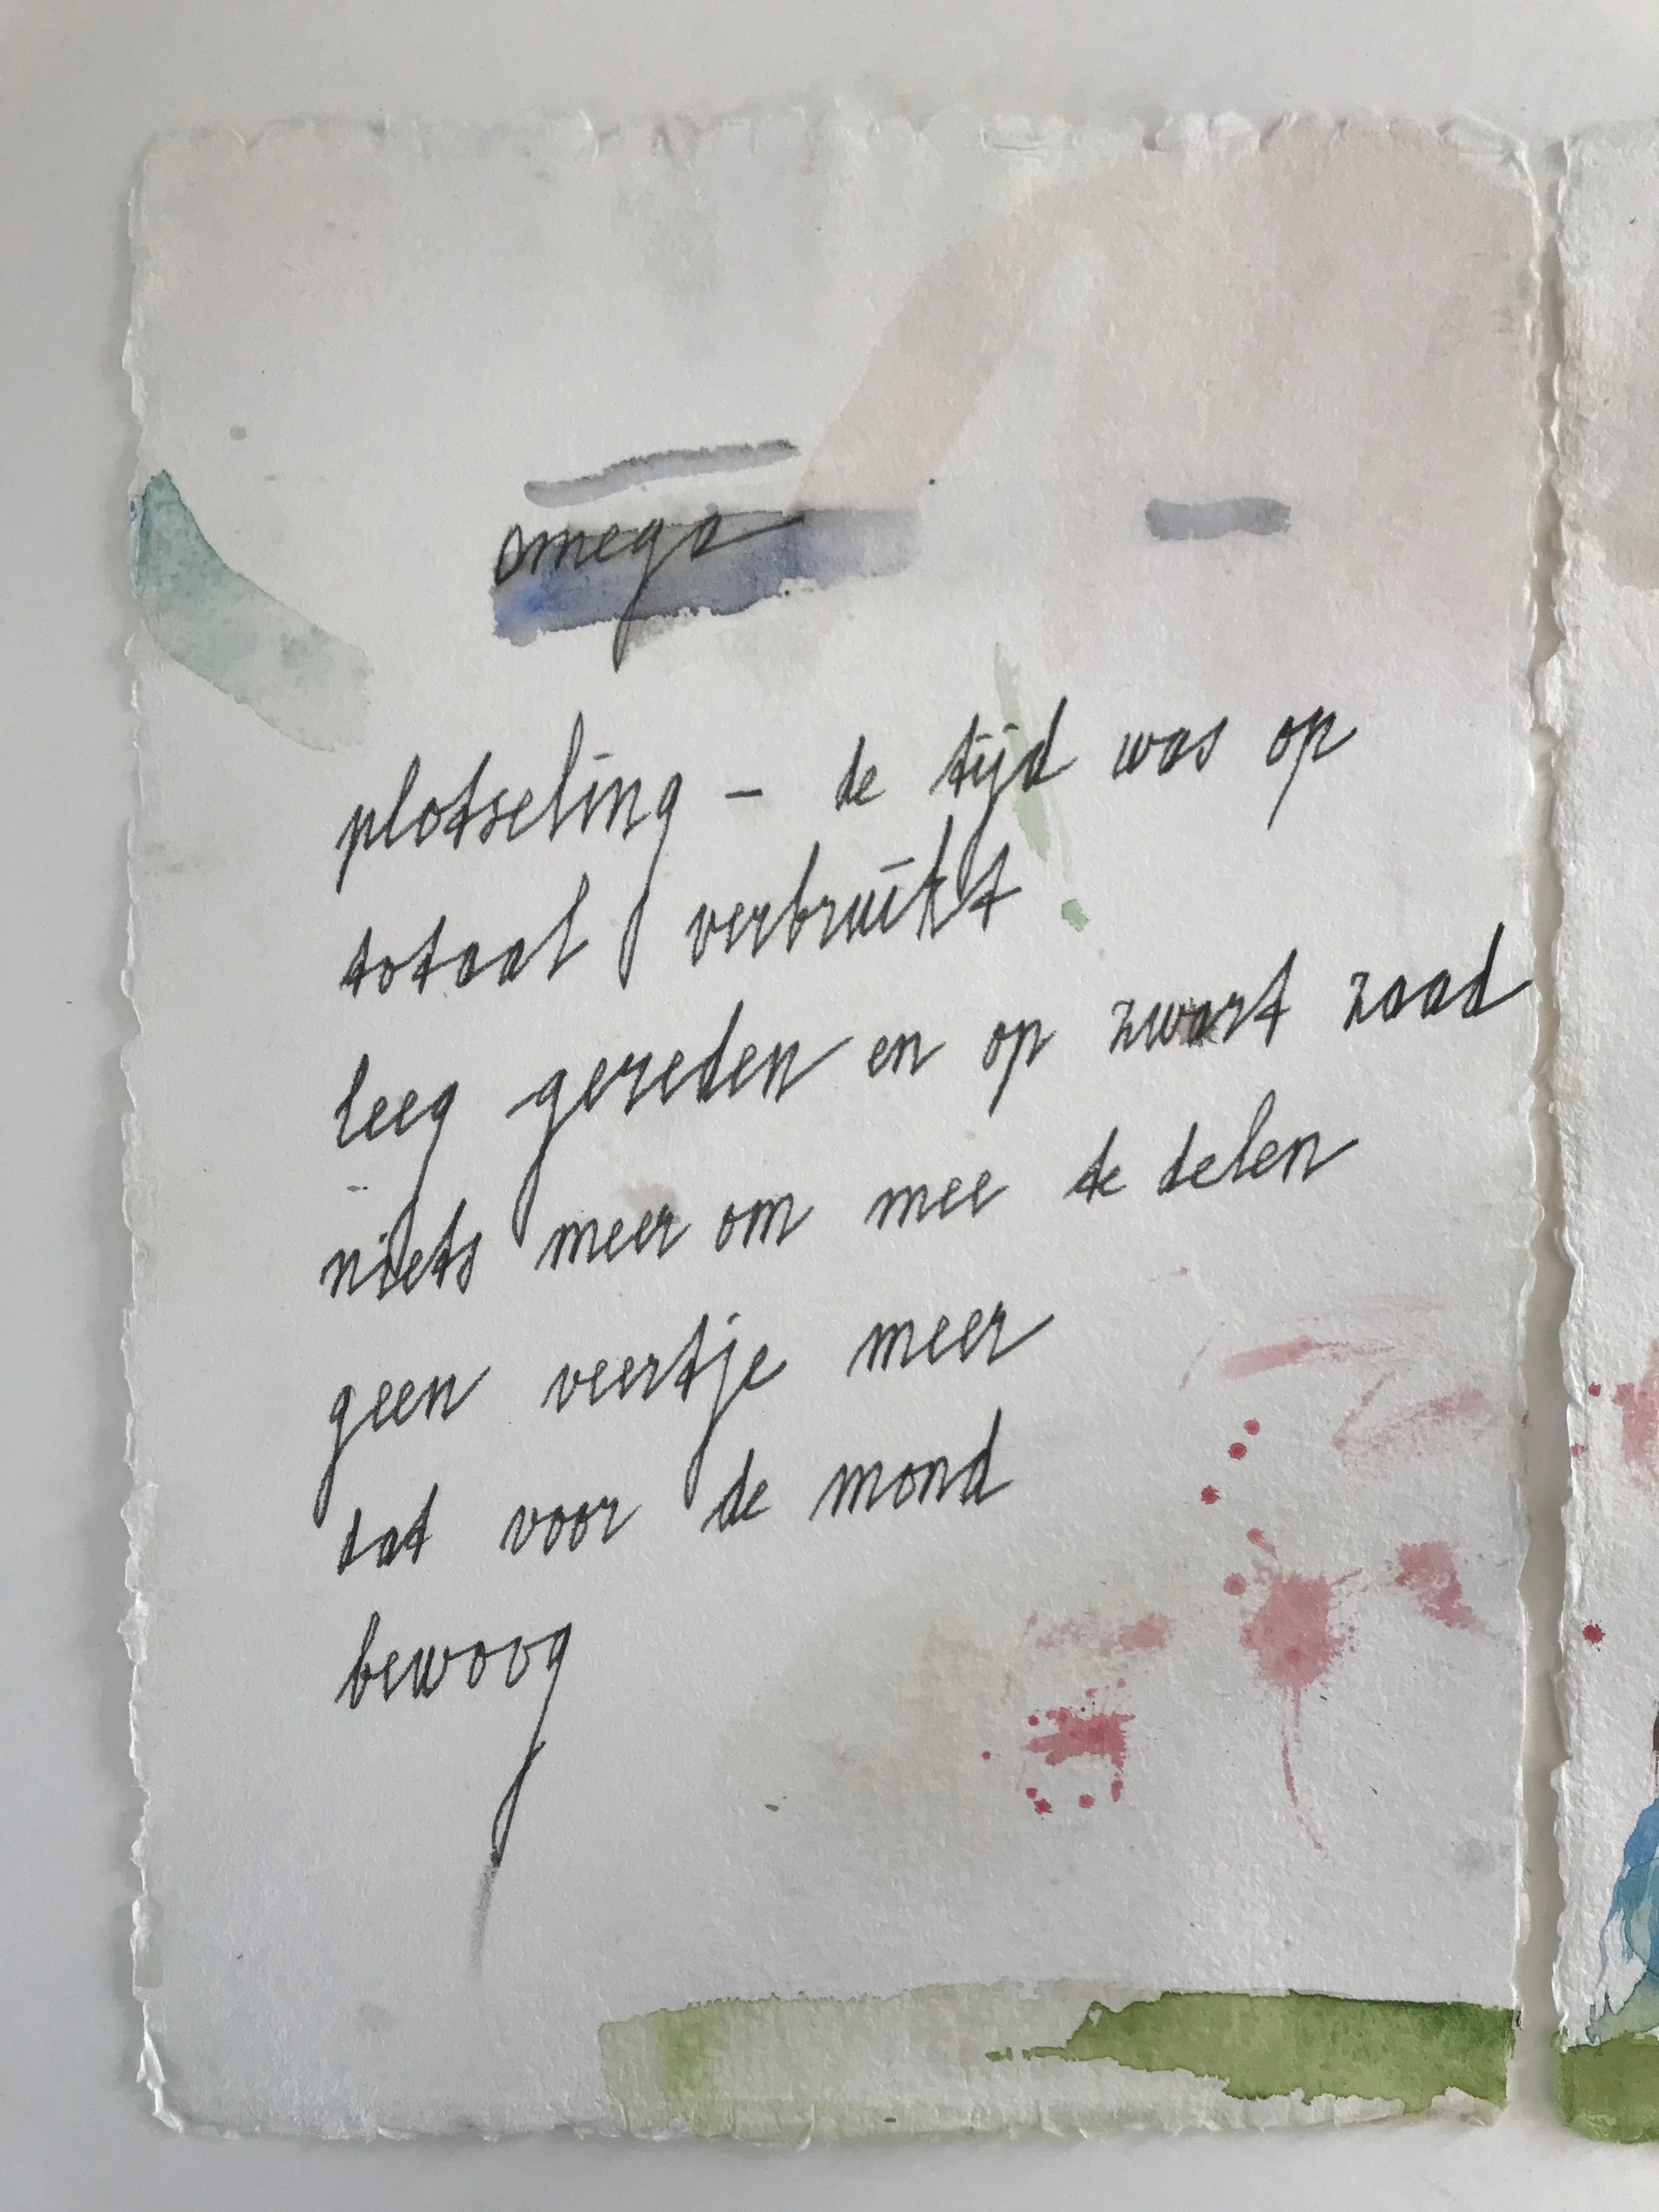 omega
plotseling – de tijd was op
totaal verbruikt
leeg gereden en op zwart zaad
niets meer om mee de delen
geen veertje meer
dat voor de mond
bewoog